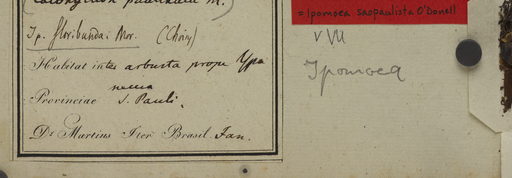 (Calonyction paniculat M.)
Ip. floribunda: Mor. (Choisy)
Habitat inter arbusta prope Ypa
nema
Provinciae S. Pauli.
Dr Martius Iter Brasil. Jan.
= Ipomoea saopaulista O'Donell
V VII
Ipomoea